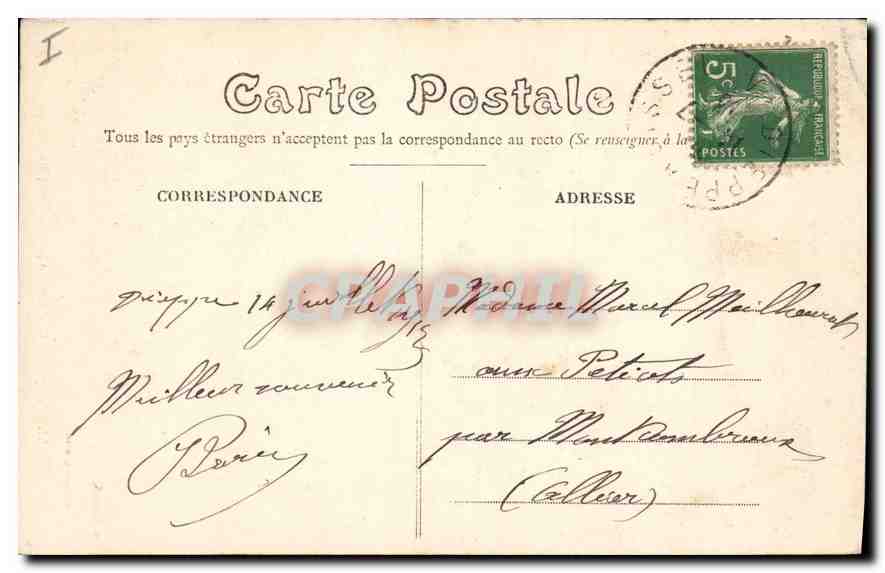 I
Carte Postale
Tous les pays étrangers n'acceptent pas la correspondance au recto (Se renseigner à la
CORRESPONDANCE
ADRESSE
5
REPUBLIQUE FRANÇAISE
POSTES
DIEPPE
CPAPHIL
Dieppe 14 juillet
Meilleur souvenir
Madame Marcel Meilheurat
aux Petiots
par Montcombroux
(Allier)